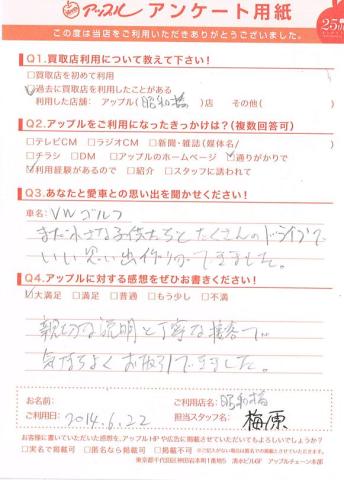 アップル アンケート用紙
25th
この度は当店をご利用いただきありがとうございました。
Q1.買取店利用について教えて下さい!
□買取店を初めて利用
☑過去に買取店を利用したことがある
利用した店舗: アップル(昭和橋)店 その他(
Q2.アップルをご利用になったきっかけは?(複数回答可)
□テレビCM □ラジオCM □新聞・雑誌(媒体名/ )
□チラシ □DM □アップルのホームページ ☑通りがかりで
☑利用経験があるので □紹介 □スタッフに誘われて
Q3.あなたと愛車との思い出を聞かせください!
車名: VWゴルフ
まだ小さな子供たちとたくさんのドライブで
いい思い出作りができました。
Q4.アップルに対する感想をぜひお書きください!
☑大満足 □満足 □普通 □もう少し □不満
親切な説明と丁寧な接客で
気持ちよくお取引できました。
お名前:
ご利用店名: 昭和橋
ご利用日: 2014.6.22
担当スタッフ名: 梅原
お客様に書いていただいた感想を、アップルHPや広告に掲載させていただいてもよろしいでしょうか?
□実名で掲載可 □匿名なら掲載可 □掲載不可 ※ご記入がない場合は匿名での掲載とさせていただきます。
東京都千代田区神田岩本町1番地5 清水ビル6F アップルチェーン本部